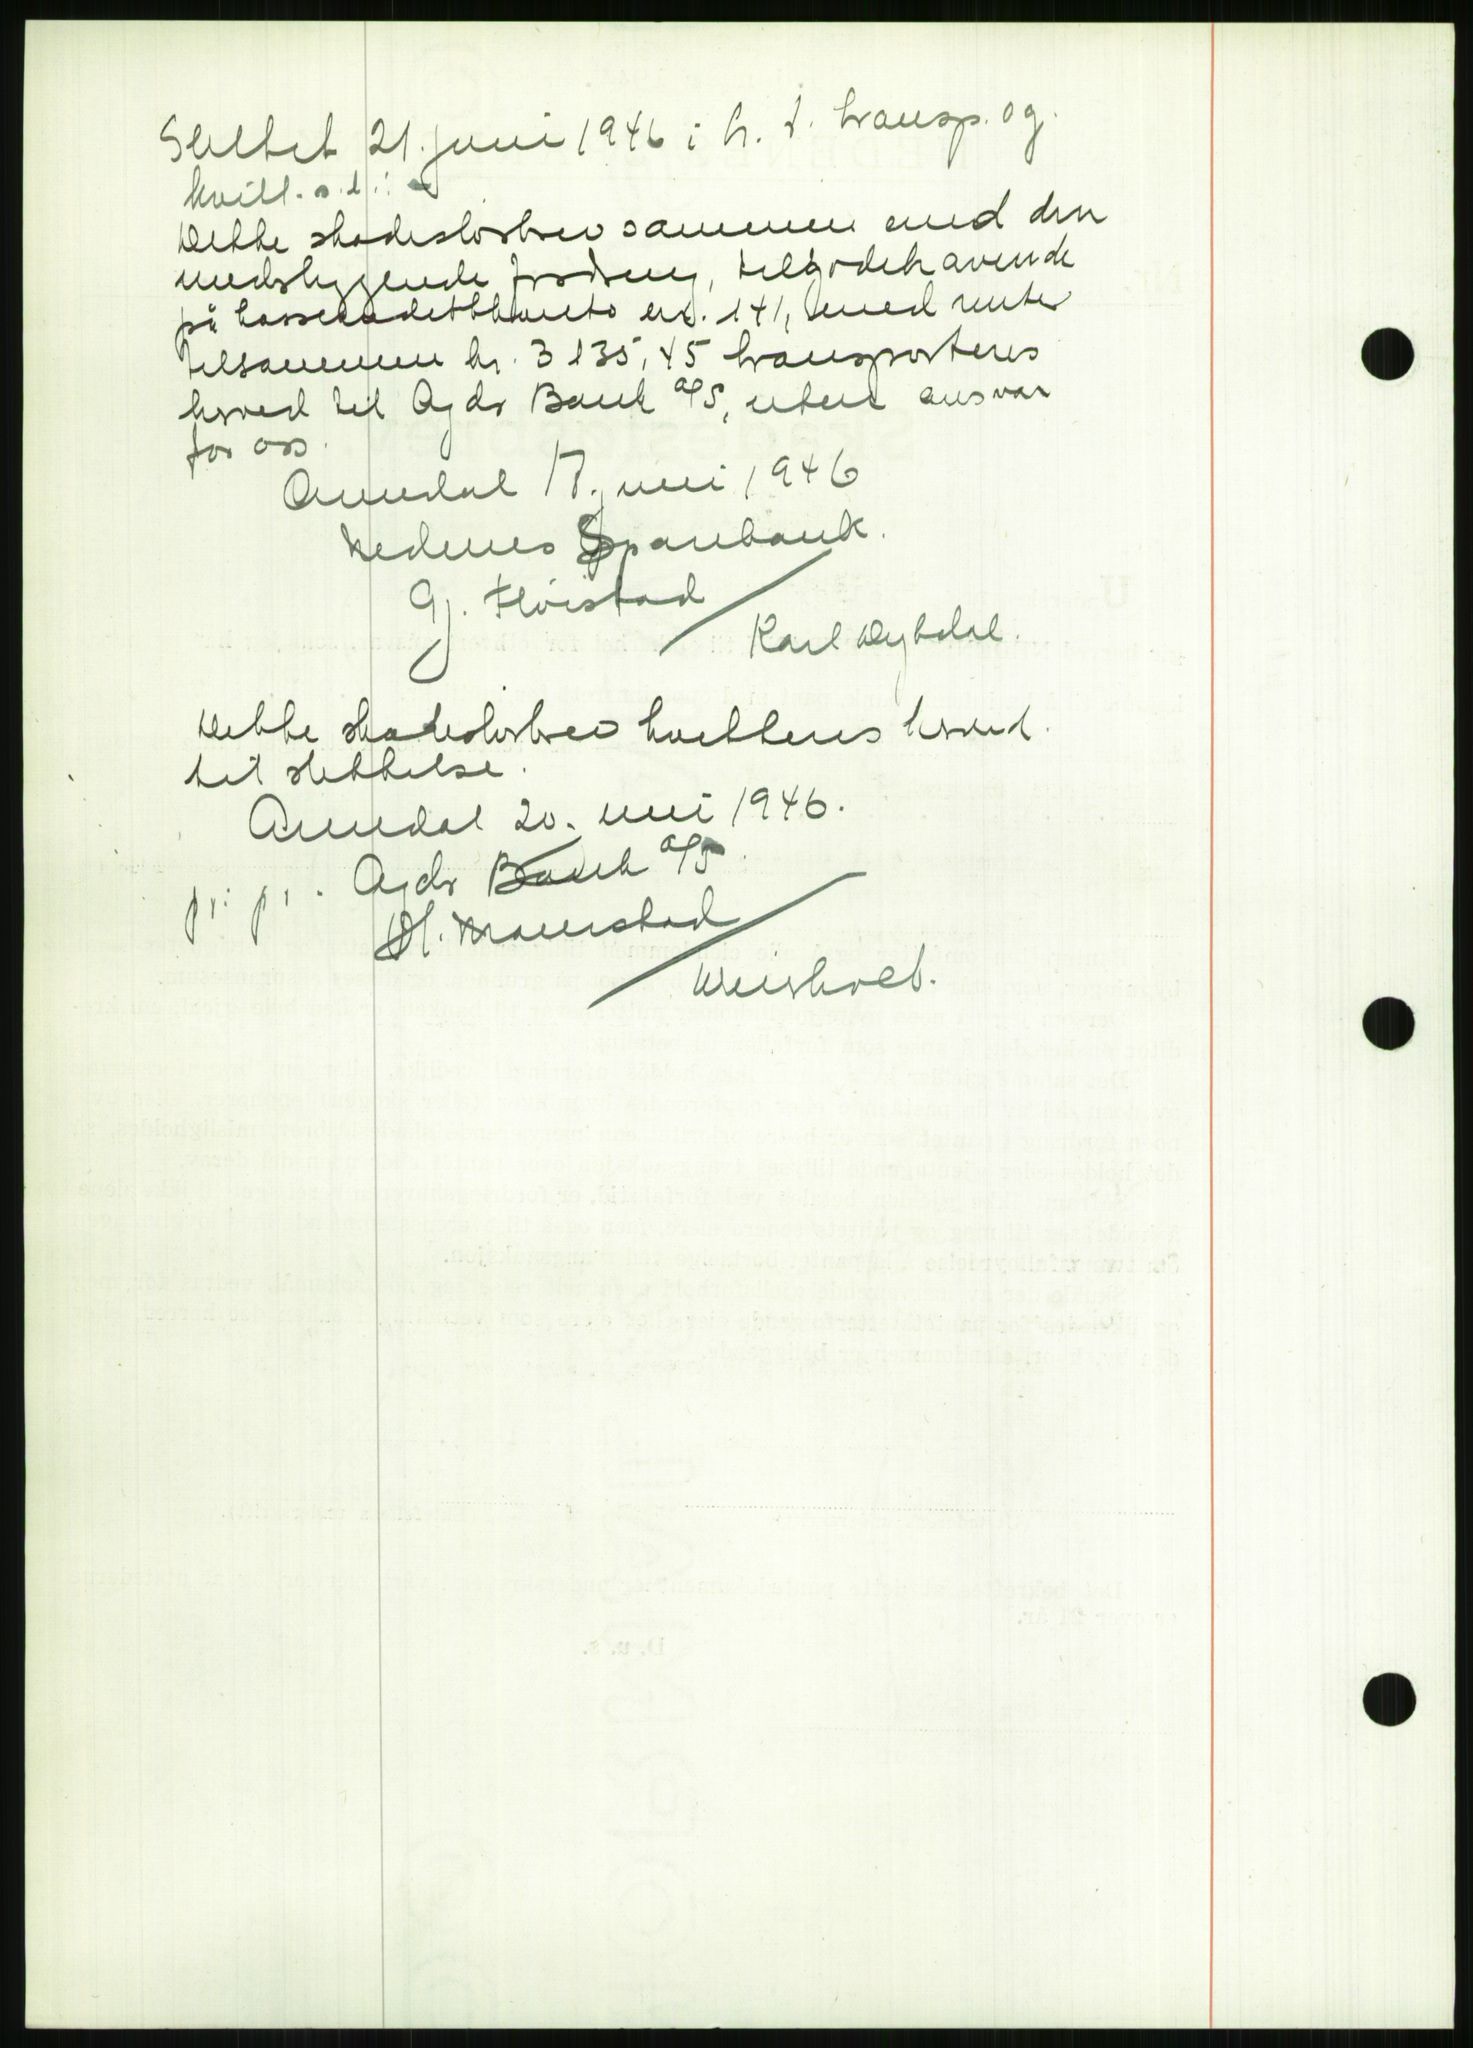 Slettet 21. juni 1946 i h. t. transp. og
kvitt.
Dette skadesløsbrev sammen med den
underliggende fordring, tilgodehavende
på kassekredittkonto nr. 141, med renter
tilsammen kr. 3 135,45 transporteres
herved til Agdr Bank a/s, uten ansvar
for oss.
Arendal 17. juni 1946
Nedenes Sparebank.
Gj. Fløistad
Karl Dybdal.
Dette skadesløsbrev kvitteres herved
til slettelse.
Arendal 20. juni 1946.
pr. pr. Agdr Bank a/s